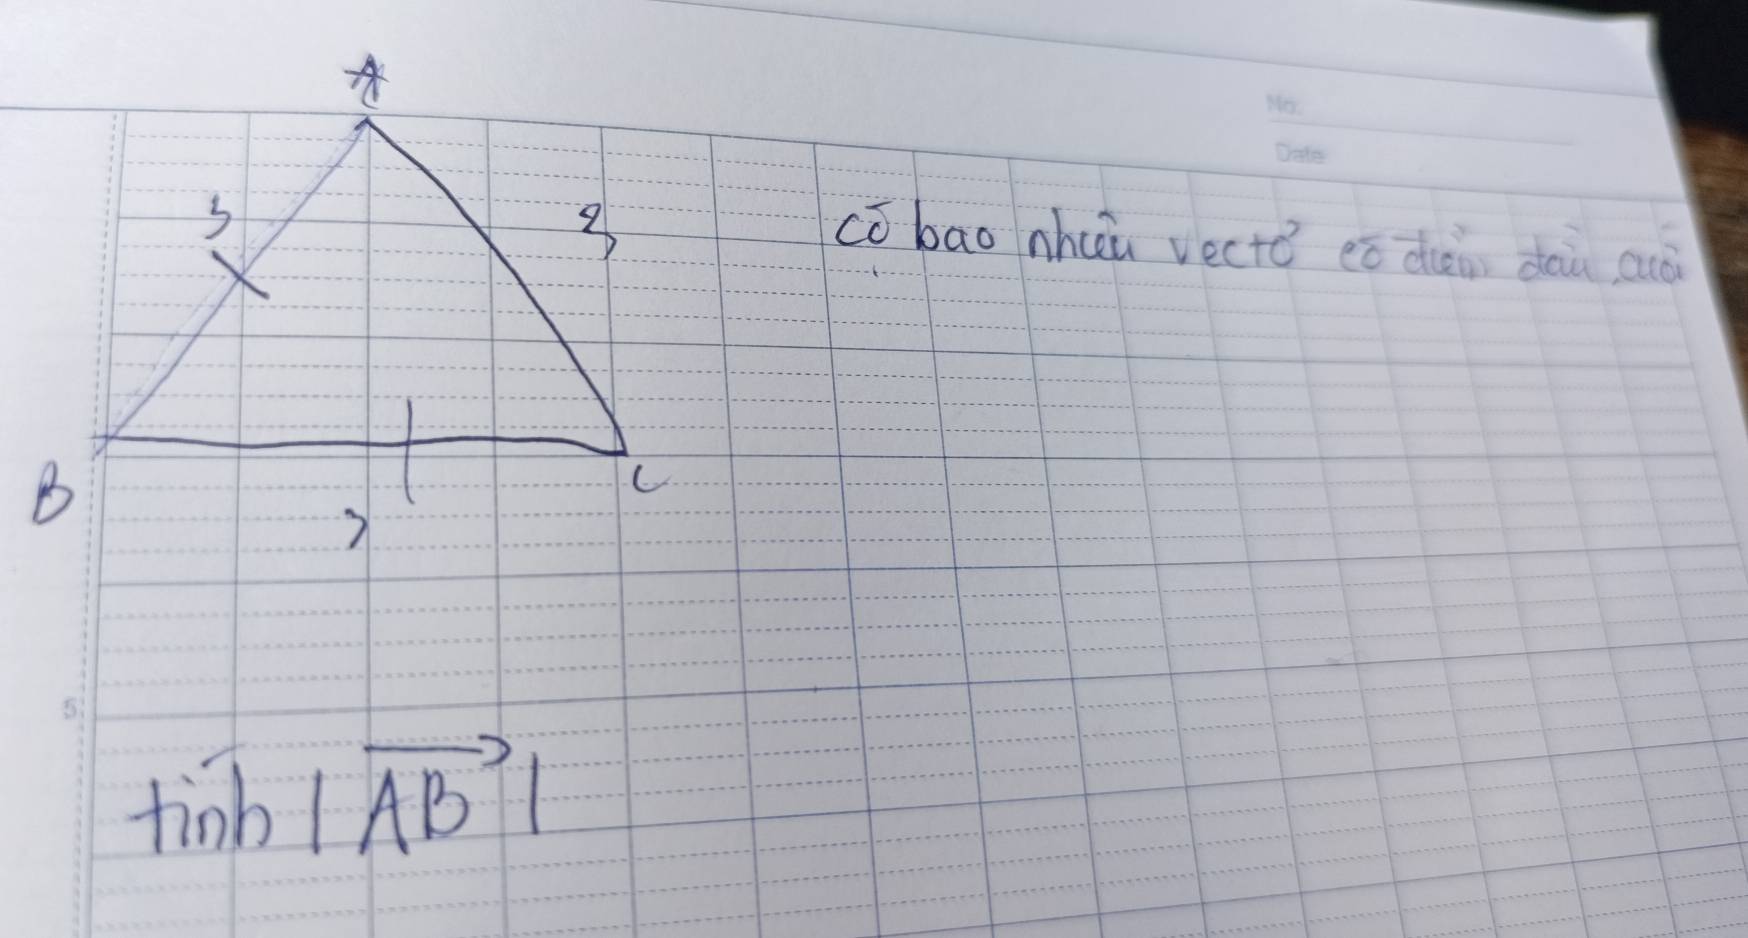 A
No.
Date
3
3
có bao nhiêu vectơ có điểm đầu, cuối
B
C
3
5
tính | AB |